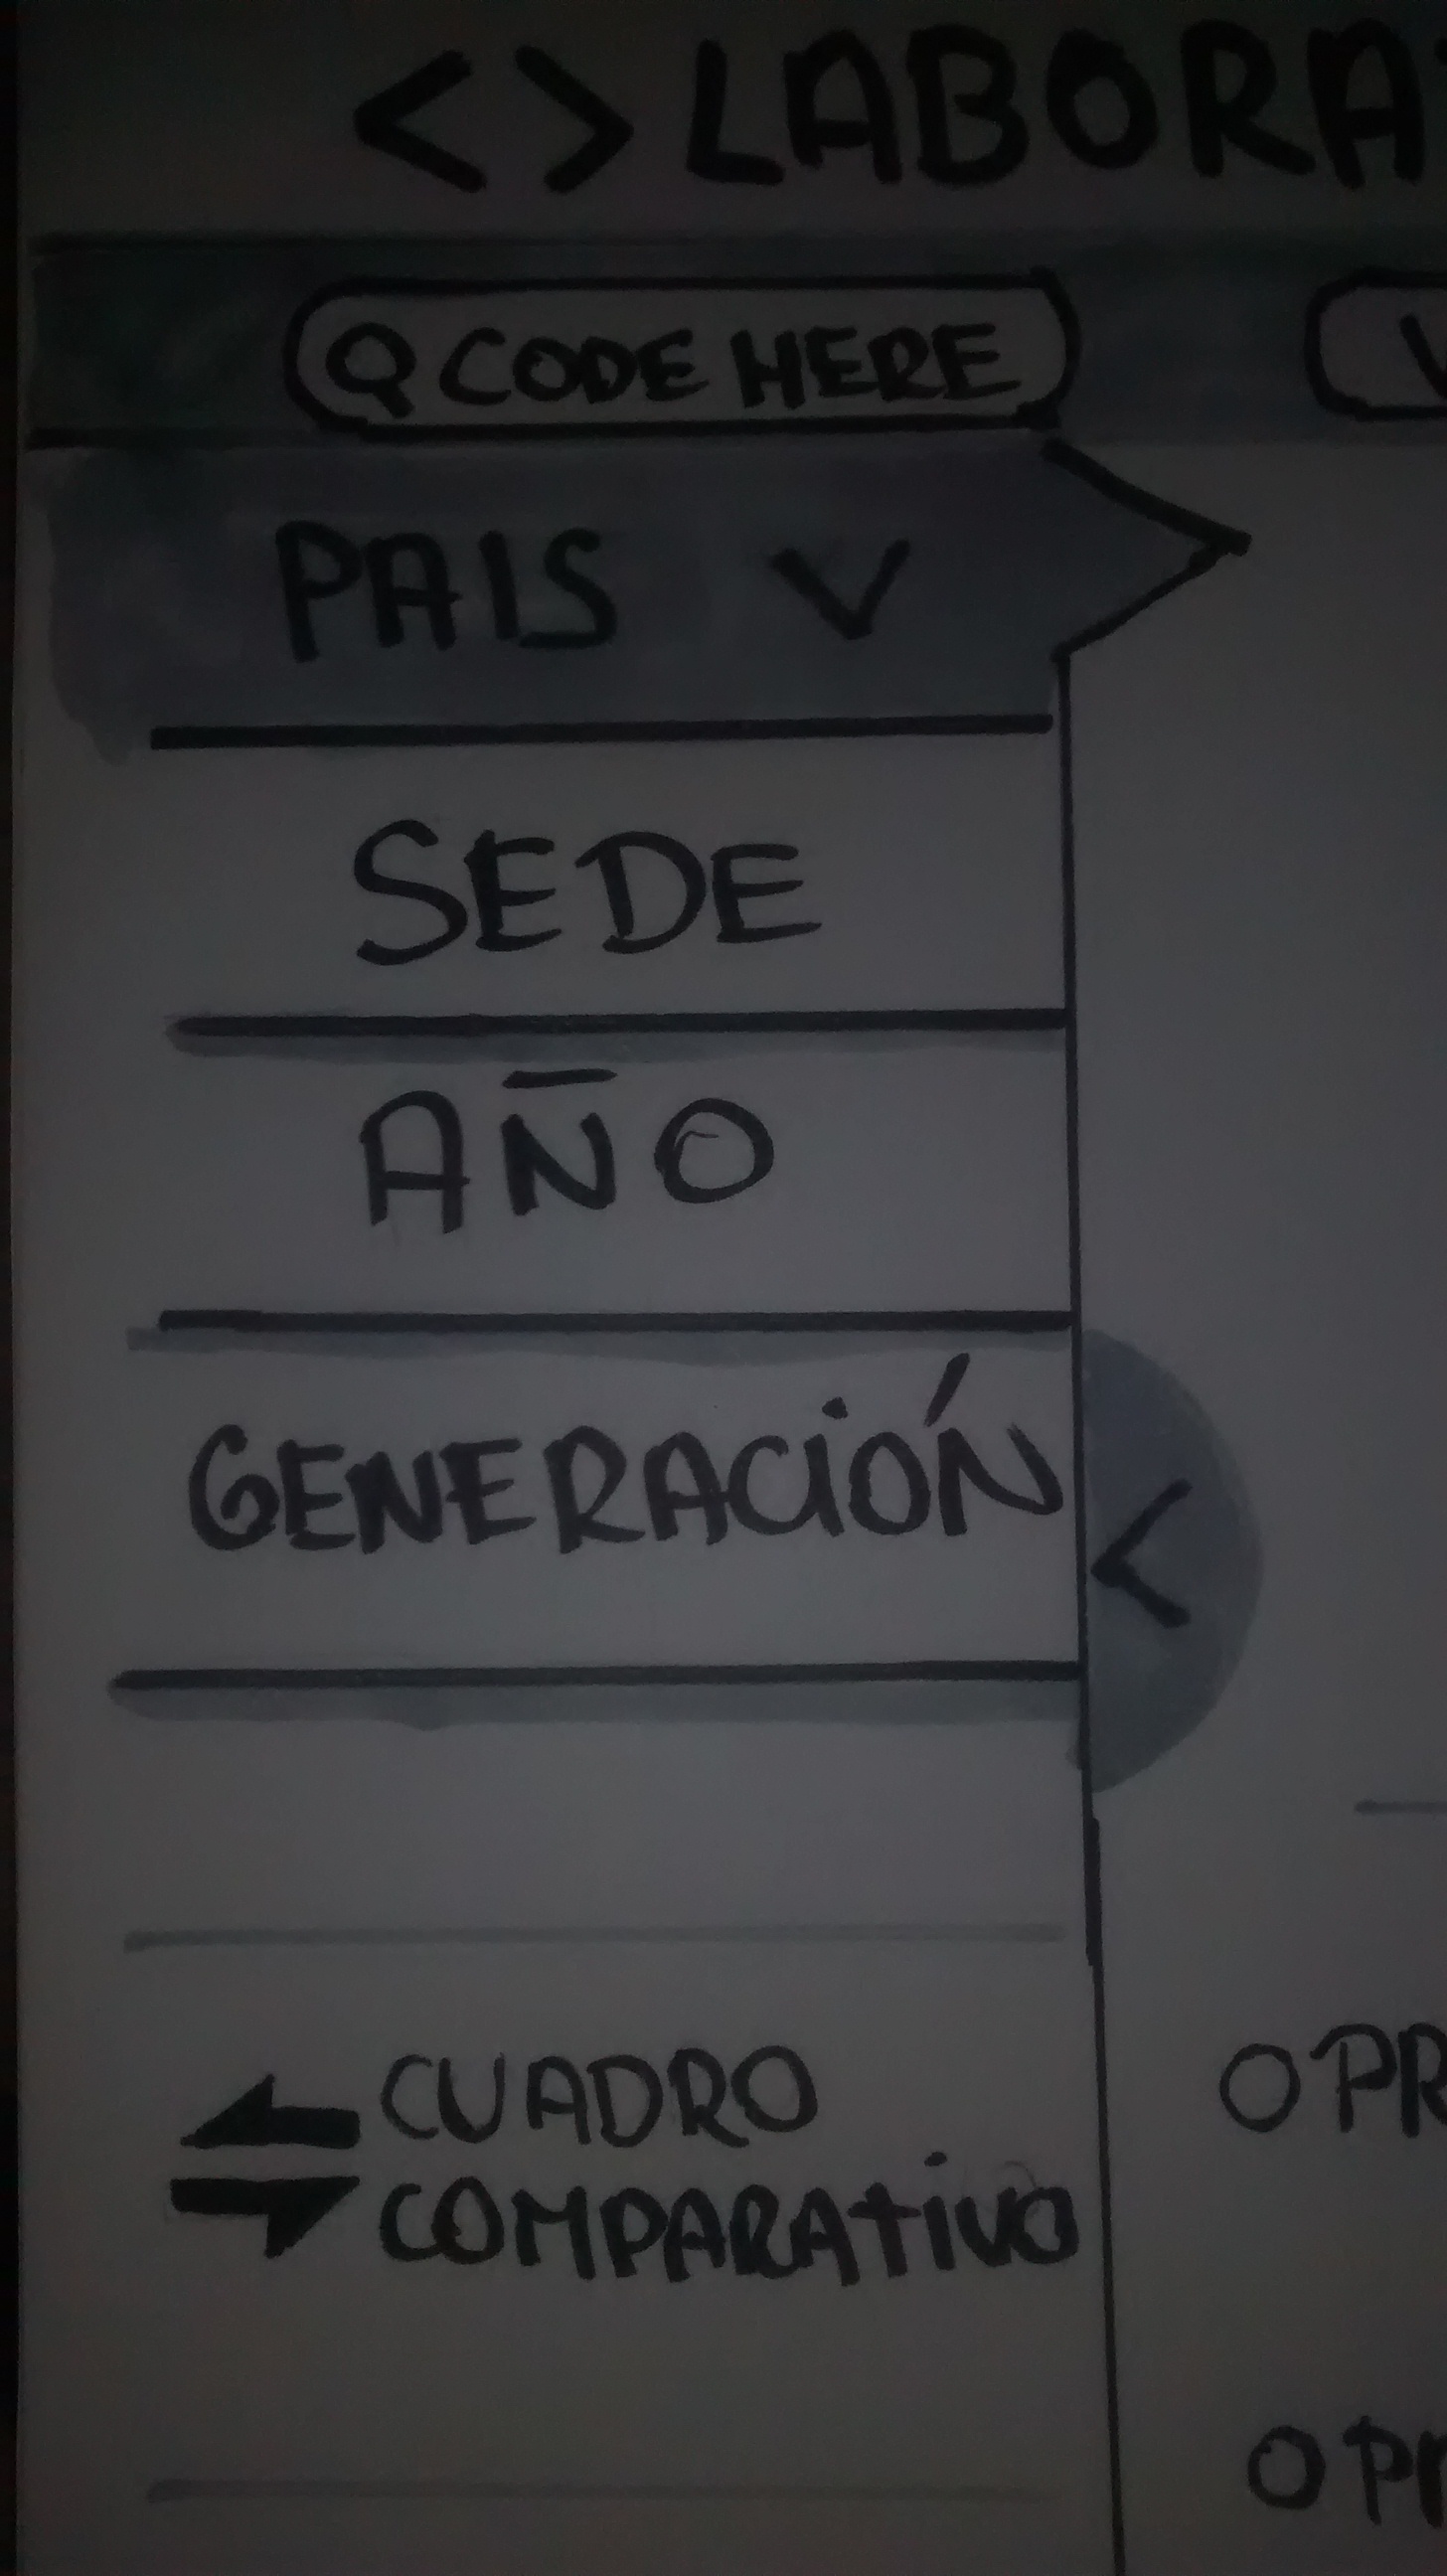 <> LABORA
CODE HERE
PAIS V
SEDE
AÑO
GENERACIÓN
<
CUADRO
COMPARATIVO
O PR
O PR